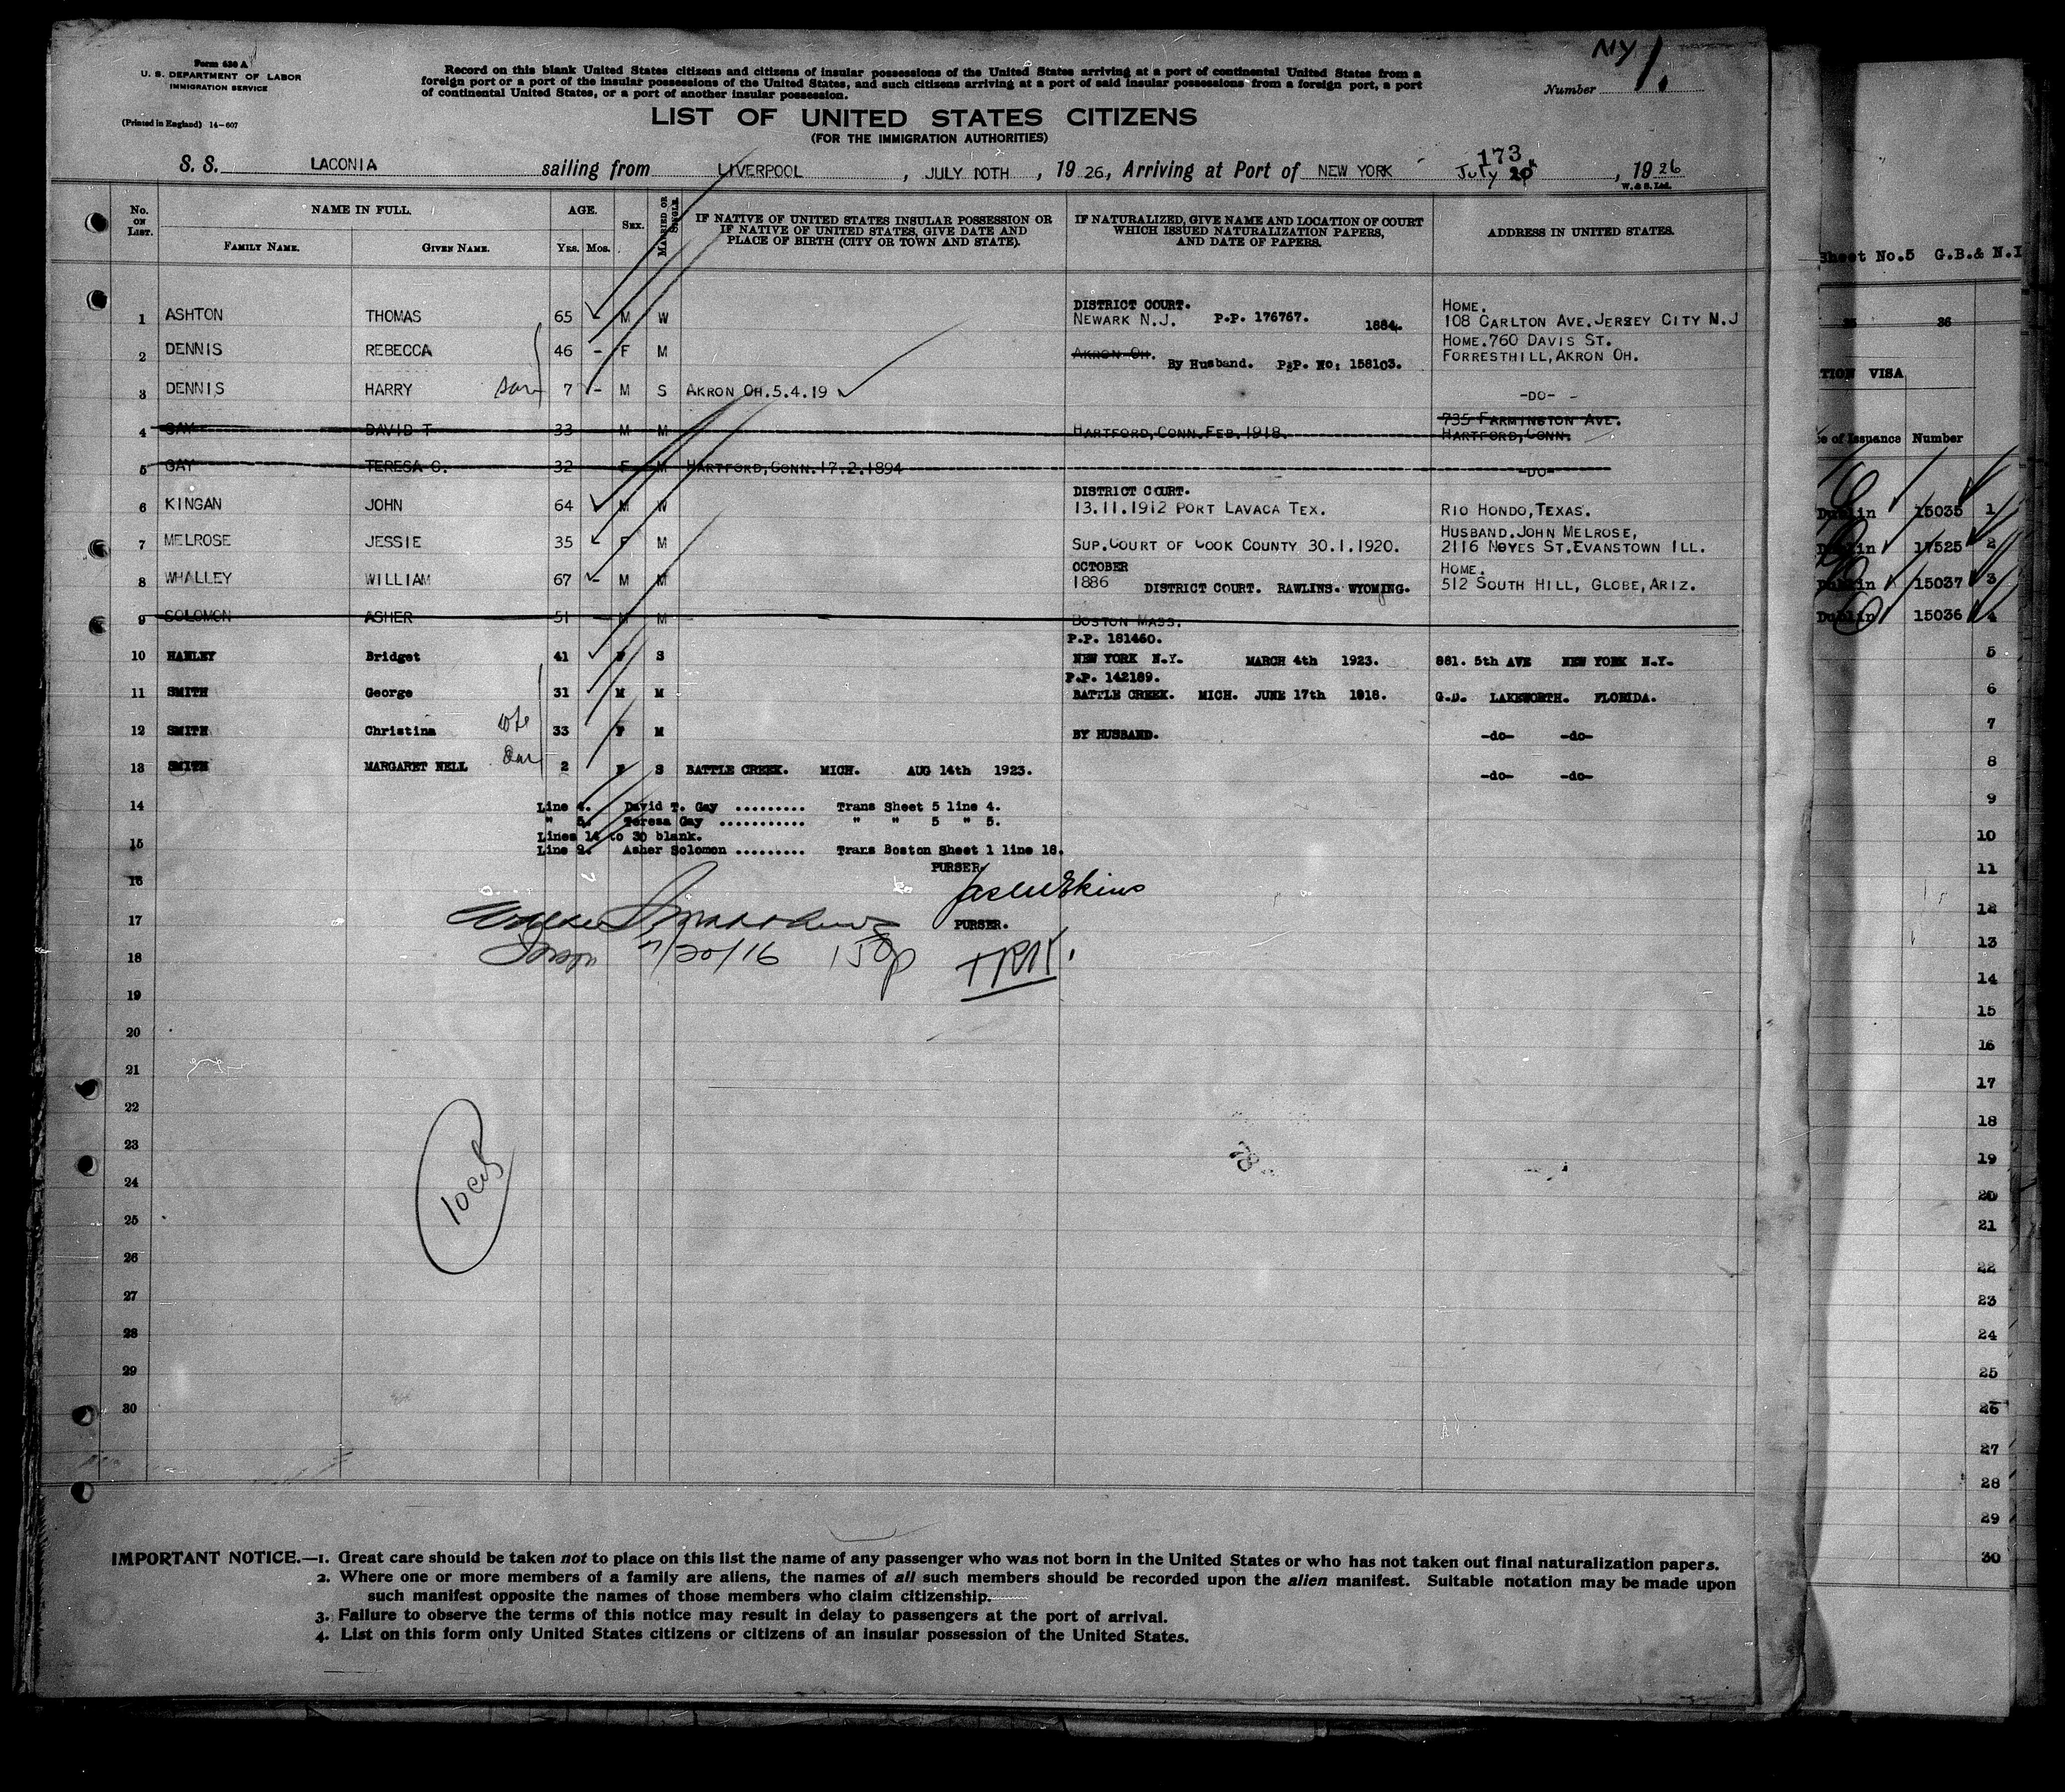 NY 1.
Form 630 A
U. S. DEPARTMENT OF LABOR
IMMIGRATION SERVICE
(Printed in England) 14-607
Record on this blank United States citizens and citizens of insular possessions of the United States arriving at a port of continental United States from a
foreign port or a port of the insular possessions of the United States, and such citizens arriving at a port of said insular possessions from a foreign port, a port
of continental United States, or a port of another insular possession.
Number
LIST OF UNITED STATES CITIZENS
(FOR THE IMMIGRATION AUTHORITIES)
173
S. S. LACONIA sailing from LIVERPOOL, JULY 10TH, 1926, Arriving at Port of NEW YORK July 20, 1926
W. & S. Ltd.
No. ON LIST. NAME IN FULL. FAMILY NAME. GIVEN NAME. AGE. YRS. MOS. SEX. MARRIED OR SINGLE.
IF NATIVE OF UNITED STATES INSULAR POSSESSION OR
IF NATIVE OF UNITED STATES, GIVE DATE AND
PLACE OF BIRTH (CITY OR TOWN AND STATE).
IF NATURALIZED, GIVE NAME AND LOCATION OF COURT
WHICH ISSUED NATURALIZATION PAPERS,
AND DATE OF PAPERS.
ADDRESS IN UNITED STATES.
DISTRICT COURT. HOME.
1 ASHTON THOMAS 65 - M W NEWARK N.J. P.P. 176767. 1884. 108 CARLTON AVE. JERSEY CITY N.J
HOME.760 DAVIS ST.
2 DENNIS REBECCA 46 - F M AKRON OH. By Husband. P.P. No: 158103. FORRESTHILL, AKRON OH.
3 DENNIS HARRY son 7 - M S AKRON OH.5.4.19 -DO-
735 FARMINGTON AVE.
4 GAY DAVID T 33 M M HARTFORD, CONN. FEB. 1918. HARTFORD, CONN.
5 GAY TERESA C. 32 F M HARTFORD, CONN. 17.2.1894 -DO-
DISTRICT COURT.
6 KINGAN JOHN 64 M W 13.11.1912 PORT LAVACA TEX. RIO HONDO, TEXAS.
HUSBAND. JOHN MELROSE,
7 MELROSE JESSIE 35 F M SUP. COURT OF COOK COUNTY 30.1.1920. 2116 NOYES ST. EVANSTOWN ILL.
OCTOBER HOME.
8 WHALLEY WILLIAM 67 - M M 1886 DISTRICT COURT. RAWLINS. WYOMING. 512 SOUTH HILL, GLOBE, ARIZ.
9 SOLOMON ASHER 51 M M BOSTON MASS.
P.P. 181460.
10 HANLEY Bridget 41 F S NEW YORK N.Y. MARCH 4th 1923. 881. 5th AVE NEW YORK N.Y.
P.P. 142189.
11 SMITH George 31 M M BATTLE CREEK. MICH. JUNE 17th 1918. G.D. LAKEWORTH. FLORIDA.
12 SMITH Christina wfe 33 F M BY HUSBAND. -do- -do-
13 SMITH MARGARET NELL dau 2 F S BATTLE CREEK. MICH. AUG 14th 1923. -do- -do-
14 Line 4. David T. Gay ......... Trans Sheet 5 line 4.
" 5. Teresa Gay ........... " " 5 " 5.
Lines 14 to 30 blank.
15 Line 9. Asher Solomon ......... Trans Boston Sheet 1 line 18.
PURSER.
16
17 PURSER.
18 7/20/16 150p
19
20
21
22
23
24
25
26
27
28
29
30
IMPORTANT NOTICE.—1. Great care should be taken not to place on this list the name of any passenger who was not born in the United States or who has not taken out final naturalization papers.
2. Where one or more members of a family are aliens, the names of all such members should be recorded upon the alien manifest. Suitable notation may be made upon
such manifest opposite the names of those members who claim citizenship.
3. Failure to observe the terms of this notice may result in delay to passengers at the port of arrival.
4. List on this form only United States citizens or citizens of an insular possession of the United States.
Sheet No.5 G.B.& N.I
36
VISA
of Issuance Number
Dublin 15035 1
Dublin 17525 2
Dublin 15037 3
Dublin 15036 4
5
6
7
8
9
10
11
12
13
14
15
16
17
18
19
20
21
22
23
24
25
26
27
28
29
30